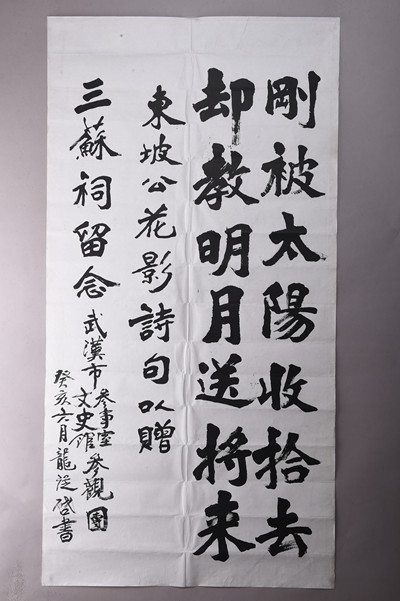 剛被太陽收拾去
却教明月送將来
東坡公花影詩句以贈
三蘇祠留念
武漢市參事室文史館參觀團
癸亥六月龍從啓書